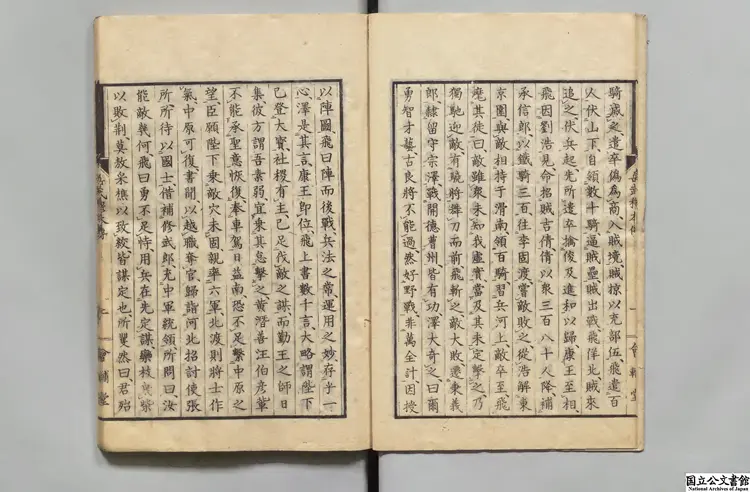 騎滅之遣卒偽為商入賊境賊掠以充部伍飛遣百
人伏山下自領數十騎逼賊壘賊出戰飛佯北賊來
追之伏兵起先所遣卒擒俊及進和以歸康王至相
飛因劉浩見命招賊吉倩倩以衆三百八十人降補
承信郎以鐵騎三百往李固渡嘗敵敗之從浩解東
京圍與敵相持于滑南領百騎習兵河上敵卒至飛
麾其徒曰敵雖衆未知我虛實當及其未定擊之乃
獨馳迎敵有驍將舞刀而前飛斬之敵大敗遷秉義
郎隸留守宗澤戰開德曹州皆有功澤大奇之曰爾
勇智才藝古良將不能過然好野戰非萬全計因授
以陣圖飛曰陣而後戰兵法之常運用之妙存乎一
心澤是其言康王即位飛上書數千言大略謂陛下
已登大寶社稷有主已足伐敵之謀而勤王之師日
集彼方謂吾素弱宜乘其怠擊之黃潛善汪伯彥輩
不能承聖意恢復奉車駕日益南恐不足繫中原之
望臣願陛下乘敵穴未固親率六軍北渡則將士作
氣中原可復書聞以越職奪官歸詣河北招討使張
所所待以國士借補修武郎充中軍統領所問曰汝
能敵幾何飛曰勇不足恃用兵在先定謀欒枝曳柴
以敗荊莫敖采樵以致絞皆謀定也所矍然曰君殆
會輔堂
国立公文書館
National Archives of Japan